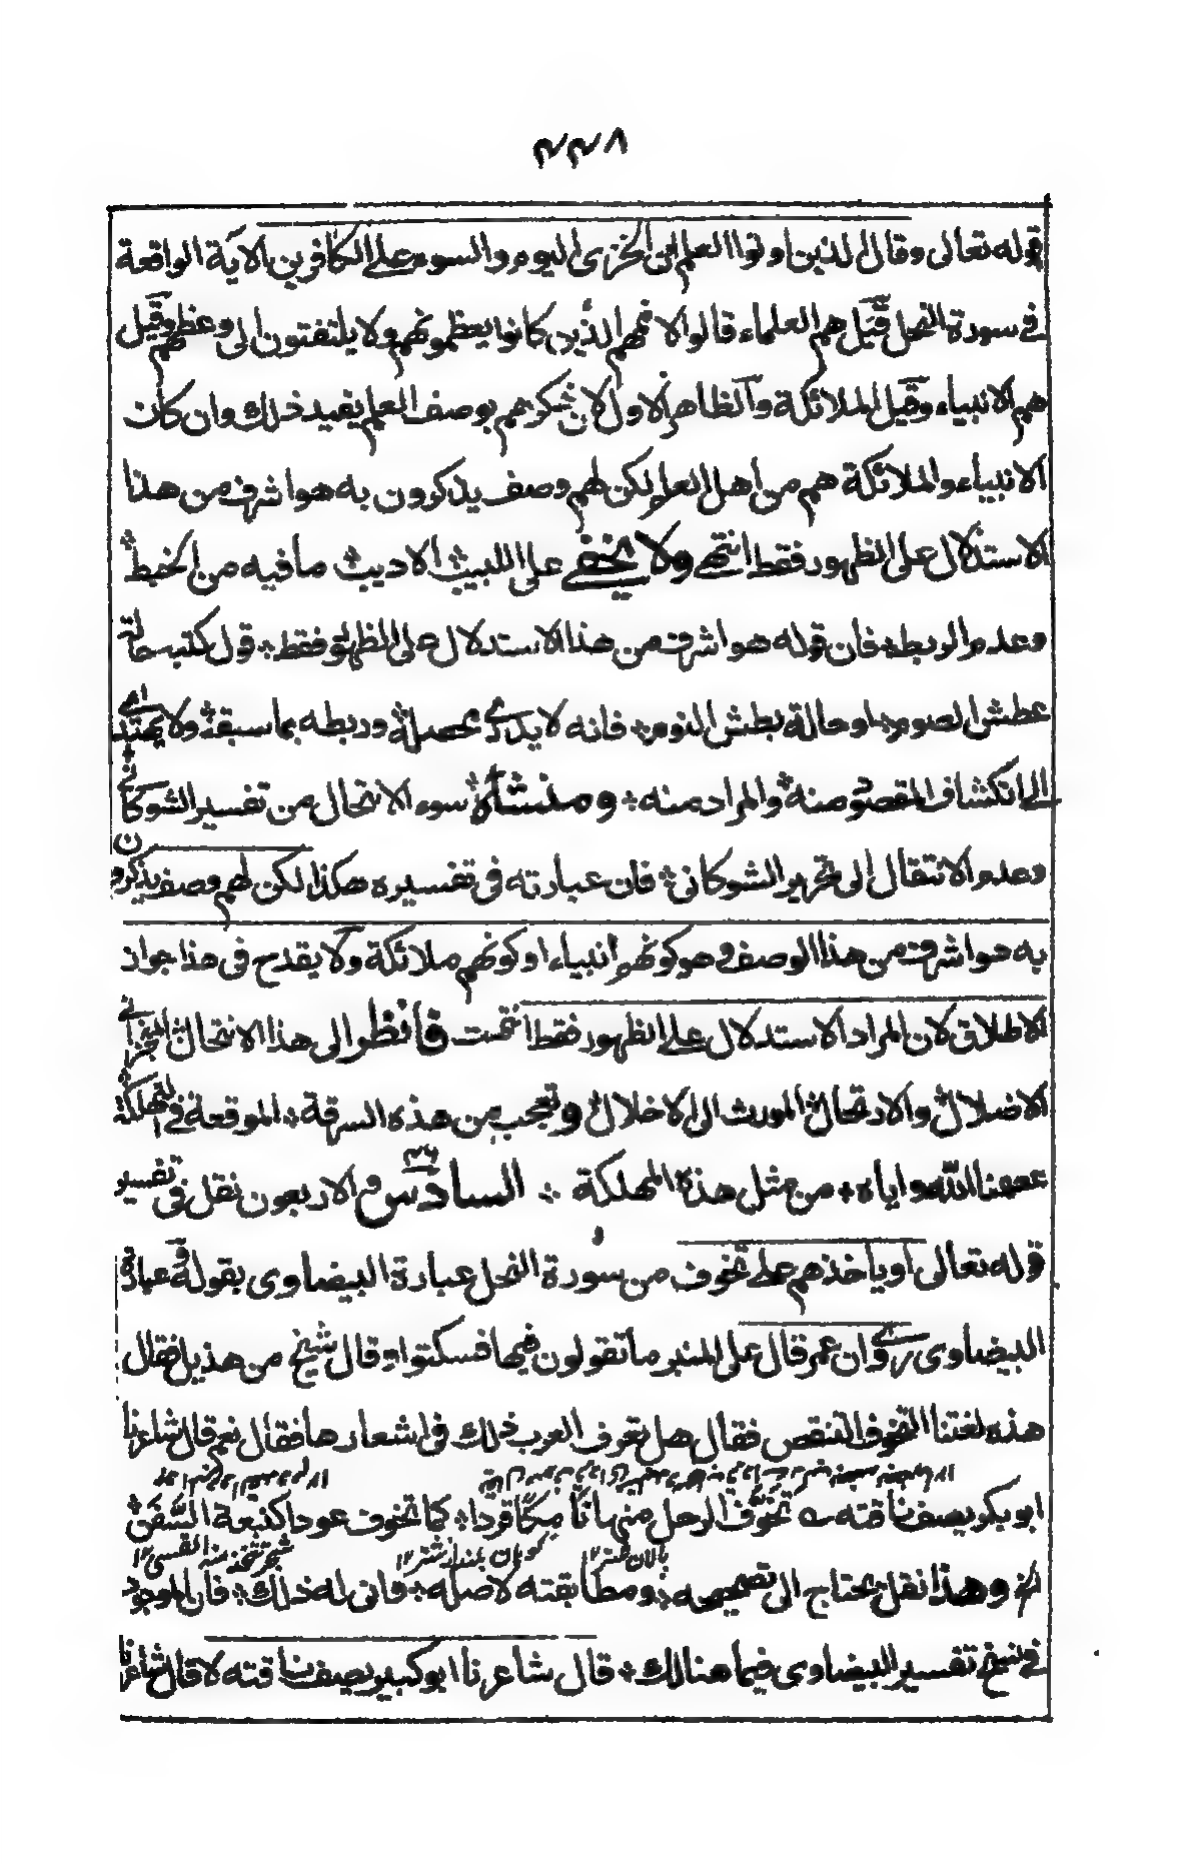 ٢٢٨
قوله تعالى وقال الذين اوتوا العلم ان الخزى اليوم والسوء على الكافرين الآية الواقعة
فى سورة النحل قيل هم العلماء قالوا لاممهم الذين كانوا يعظمونهم ولا يلتفتون الى وعظهم وقيل
هم الانبياء وقيل الملائكة والظاهر الاول لان ذكرهم بوصف العلم يفيد ذلك وان كان
الانبياء والملائكة هم من اهل العلم لكن لهم وصف يذكرون به هو اشرف من هذا
الاستدلال على الظهور فقط انتهى ولا يخفى على اللبيب الاديب ما فيه من الخبط
وعدم الربط فان قوله هو اشرف من هذا الاستدلال على الظهور فقط قول كتب حالة
عطش الصوم او حالة بطش النوم فانه لا يدرى محصله وربطه بما سبقه ولا يهتدى
الى انكشاف المقصود منه والمراد منه ومنشأه سوء الانتحال من تفسير الشوكانى
وعدم الانتقال الى تحرير الشوكانى فان عبارته فى تفسيره هكذا لكن لهم وصف يذكرون
به هو اشرف من هذا الوصف وهو كونهم انبياء او كونهم ملائكة ولا يقدح فى هذا جواز
الاطلاق لان المراد الاستدلال على الظهور فقط انتهت فانظر الى هذا الانتحال
الاضلال والارتحال المورث الى الاخلال وتعجب من هذه السرقة الموقعة فى التهلكة
عصمنا الله واياه من مثل هذه المهلكة السادس والاربعون نقل فى تفسير
قوله تعالى او ياخذهم على تخوف من سورة النحل عبارة البيضاوى بقوله وعبارة
البيضاوى روى ان عمر قال على المنبر ما تقولون فيها فسكتوا وقال شيخ من هذيل فقال
هذه لغتنا التخوف التنقص فقال هل تعرف العرب ذلك فى اشعارها فقال نعم قال شاعرنا
ابو بكر يصف ناقته تخوف الرحل منها تامكا قردا كما تخوف عود النبعة السفن
پالان شتر١٢ كوهان بلند شتر١٢
الخ وهذا نقل يحتاج الى تصحيحه ومطابقته لاصله وانى له ذلك فان الموجود
فى نسخ تفسير البيضاوى فيما هنالك قال شاعرنا ابو كبير يصف ناقته لا قال شاعرنا